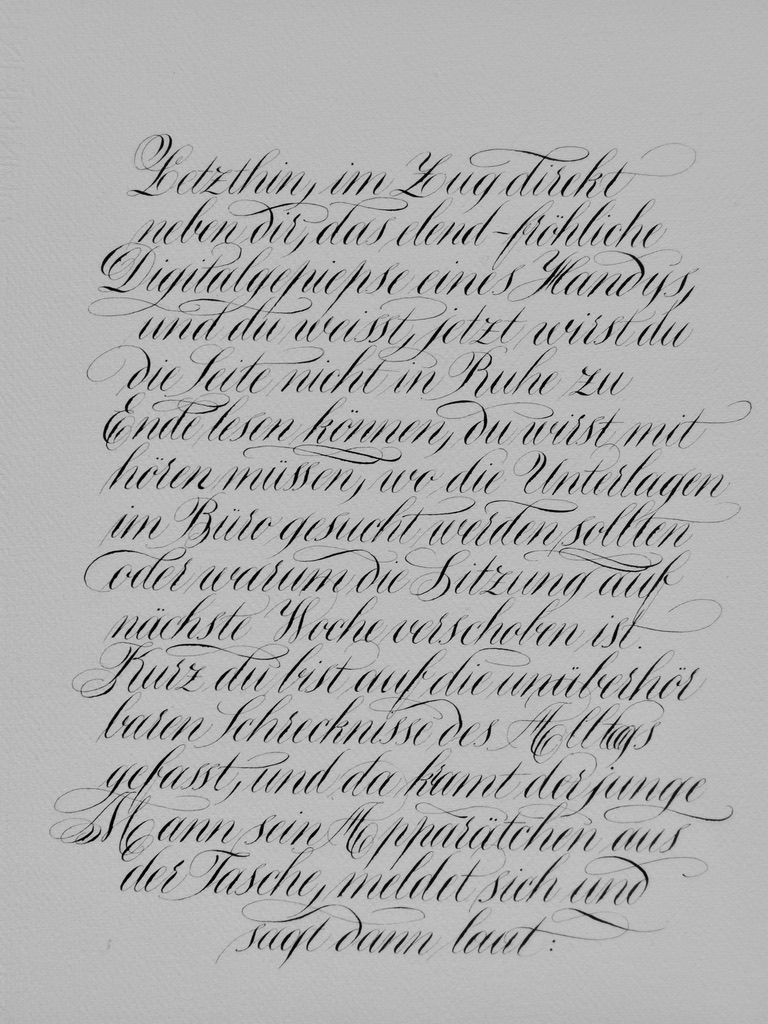 Letzthin, im Zug direkt
neben dir, das elend-fröhliche
Digitalgepiepse eines Handys,
und du weisst, jetzt wirst du
die Seite nicht in Ruhe zu
Ende lesen können, du wirst mit
hören müssen, wo die Unterlagen
im Büro gesucht werden sollten
oder warum die Sitzung auf
nächste Woche verschoben ist.
Kurz du bist auf die unüberhör
baren Schrecknisse des Alltags
gefasst, und da kramt der junge
Mann sein Apparätchen aus
der Tasche, meldet sich und
sagt dann laut: